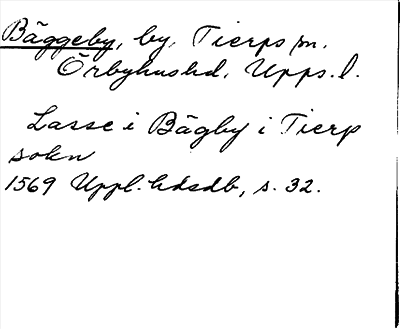 Bäggeby, by, Tierps sn.
Örbyhus hd, Upps. l.
Lasse i Bägby i Tierp
sokn
1569 Uppl. hdsdb, s. 32.